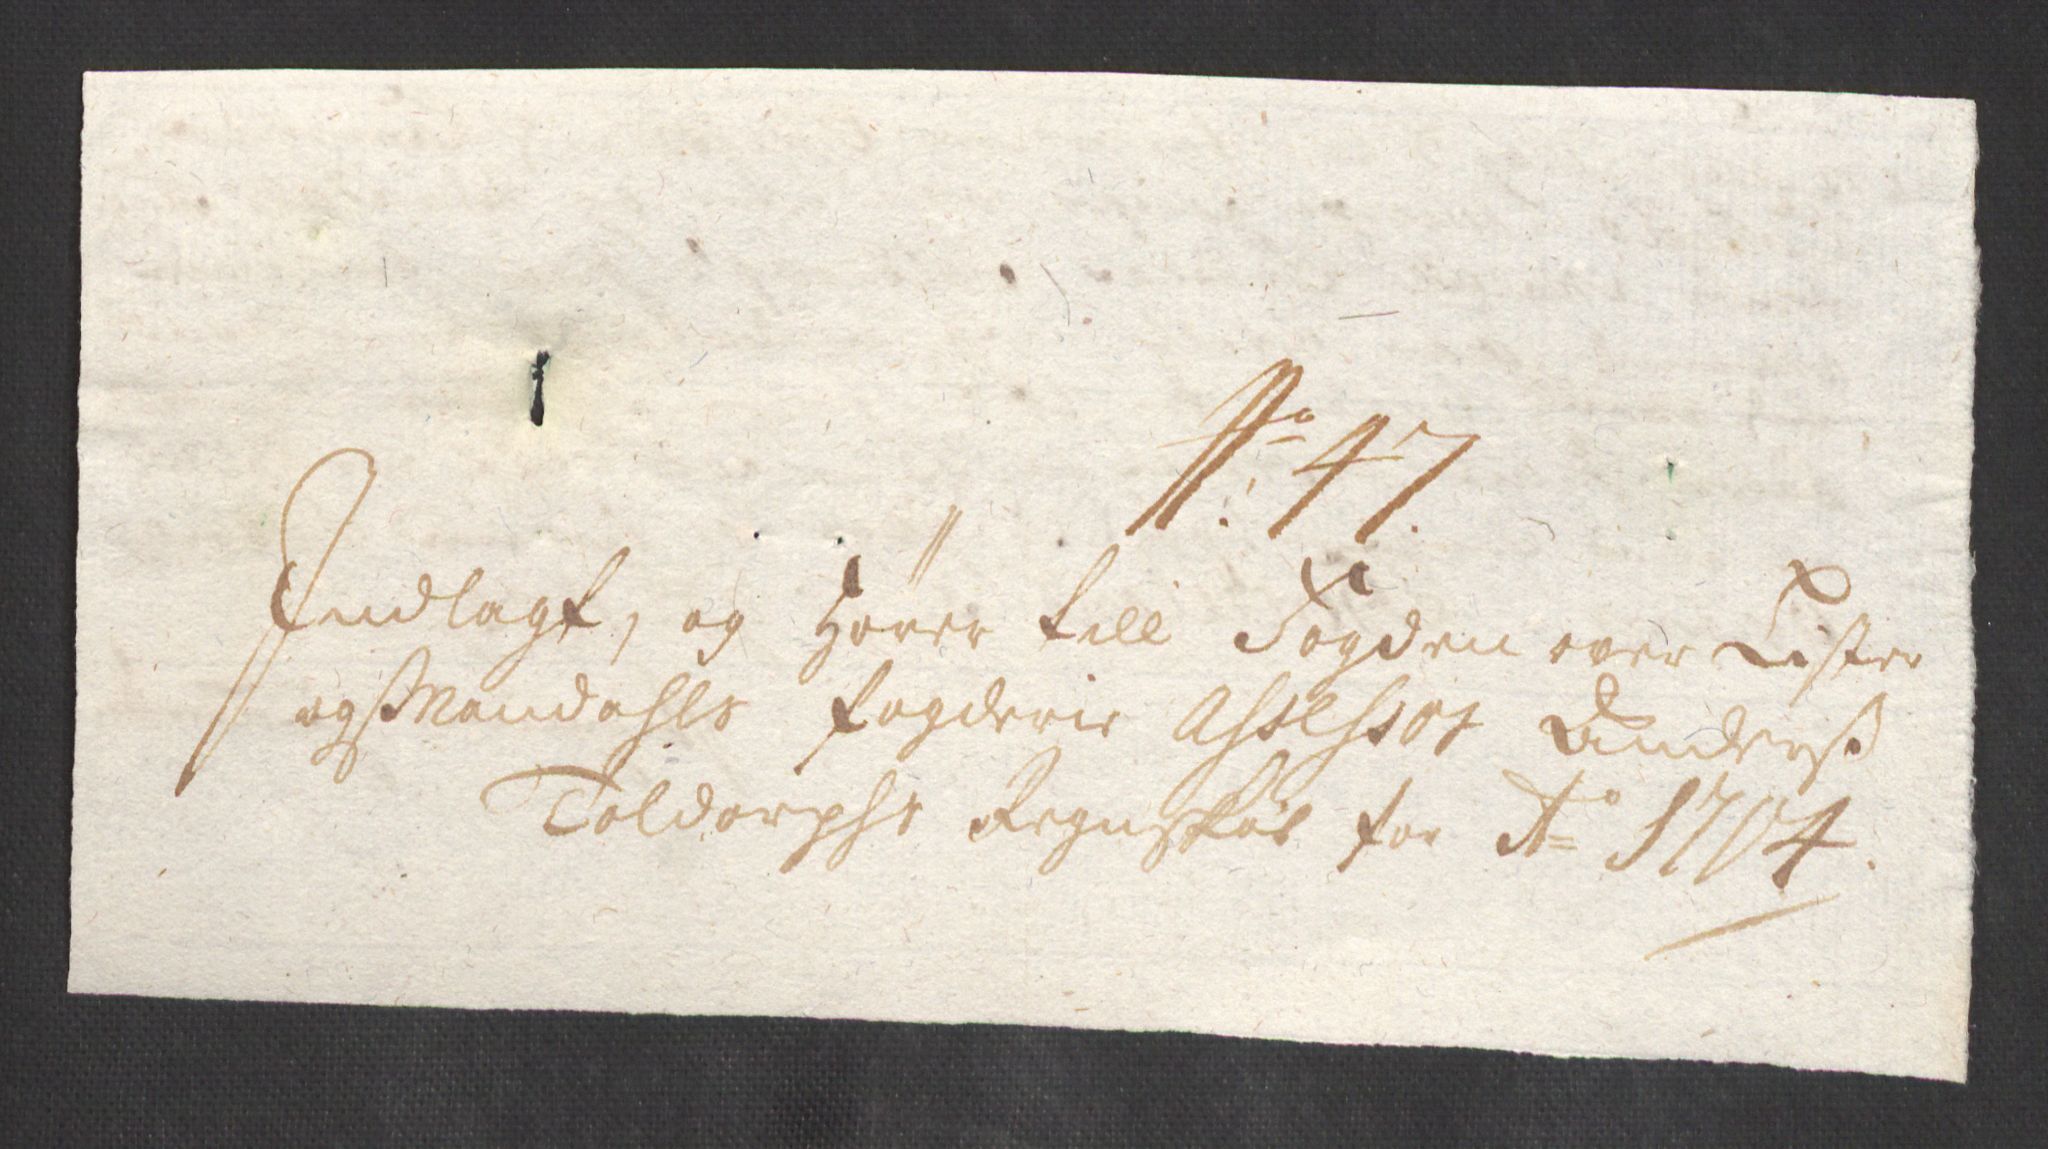 No: 47.
Indlagt, og Hörer till Fogden over Lister
og Mandahls fogderie Assessor Anders
Toldorphs Regnskab for Ao 1704.